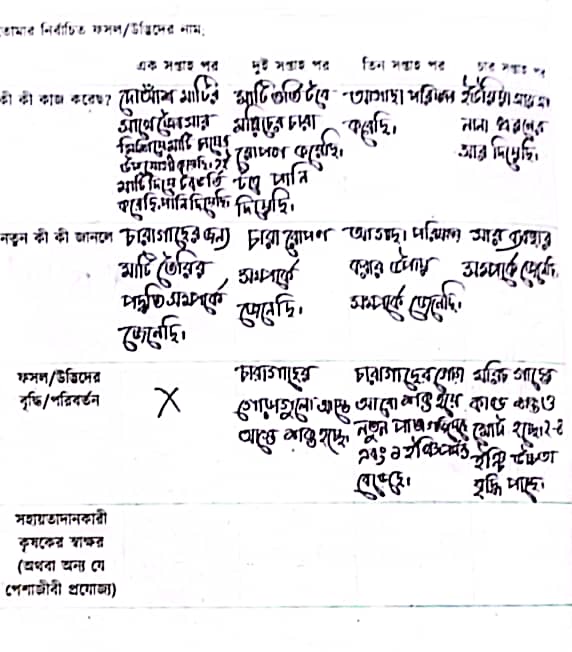 তোমার নির্বাচিত ফসল/উদ্ভিদের নাম:
এক সপ্তাহ পর দুই সপ্তাহ পর তিন সপ্তাহ পর চার সপ্তাহ পর
কী কী কাজ করেছ?
দোআঁশ মাটির
সাথে জৈব সার
মিশিয়ে মাটি চাষের
উপযোগী করেছি।
মাটি দিয়ে টব ভর্তি
করেছি, পানি দিয়েছি
মাটি ভর্তি টবে
মরিচের চারা
রোপণ করেছি।
টবে পানি
দিয়েছি।
আগাছা পরিষ্কার
করেছি।
ইউরিয়া
নানা ধরনের
সার দিয়েছি।
নতুন কী কী জানলে
চারাগাছের জন্য
মাটি তৈরির
পদ্ধতি সম্পর্কে
জেনেছি।
চারা রোপণ
সম্পর্কে
জেনেছি।
আগাছা পরিষ্কার
করার উপায়
সম্পর্কে জেনেছি।
সার ব্যবহার
সম্পর্কে জেনেছি
ফসল/উদ্ভিদের
বৃদ্ধি/পরিবর্তন
X
চারাগাছের
গোড়াগুলো আস্তে
আস্তে শক্ত হচ্ছে
চারাগাছের গোড়া
আরো শক্ত হয়ে
নতুন পাতা
এবং ১ ইঞ্চি
বেড়েছে।
মরিচ গাছের
কাণ্ড শক্ত ও
মোটা হচ্ছে।
ইঞ্চি উচ্চতা
বৃদ্ধি পাচ্ছে।
সহায়তাদানকারী
কৃষকের স্বাক্ষর
(অথবা অন্য যে
পেশাজীবী প্রযোজ্য)